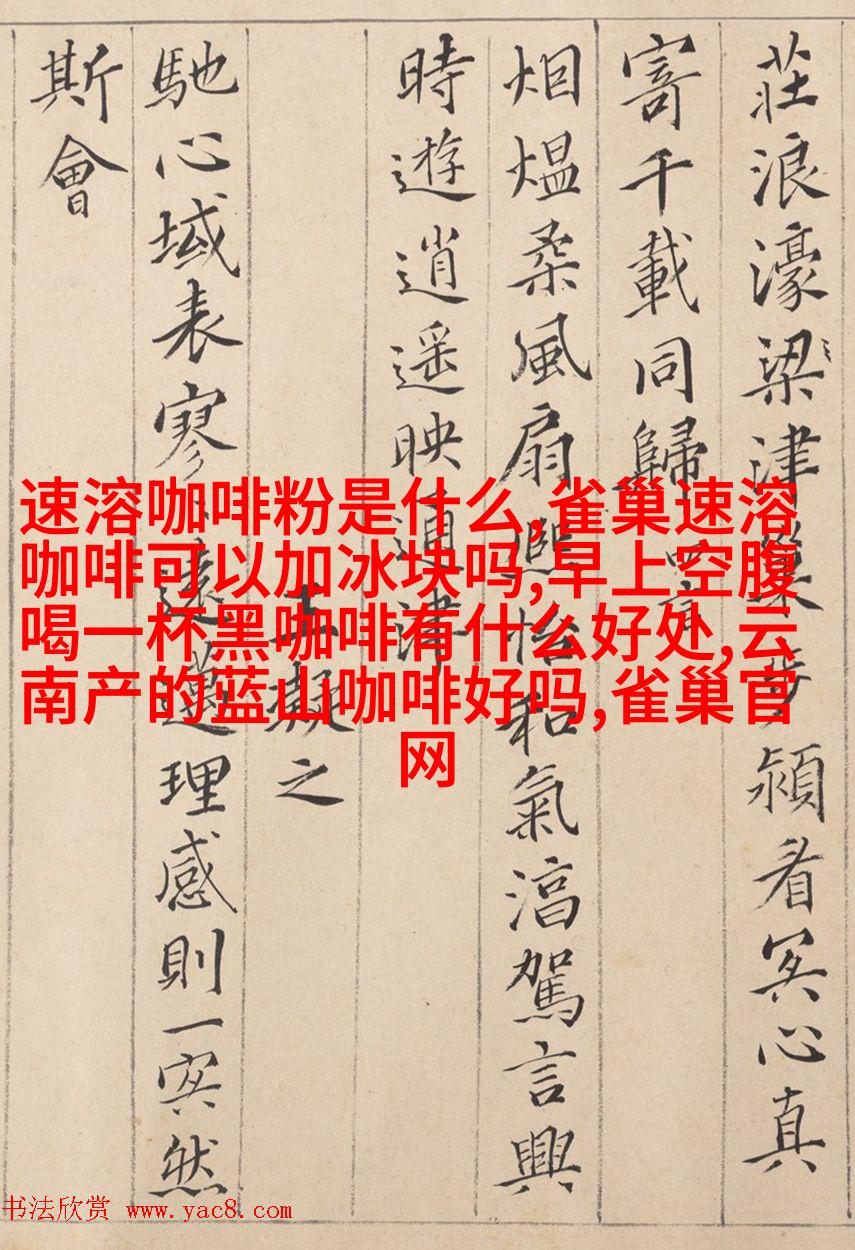 莊浪濠梁津巢步潁看冥心真
寄千載同歸 四言
烟熅柔風扇熈怡和氣淯駕言興
時遊逍遥映通津
王凝之
馳心域表寥〻遠邁理感則一冥然
斯會
速溶咖啡粉是什么,雀巢速溶
咖啡可以加冰块吗,早上空腹
喝一杯黑咖啡有什么好处,云
南产的蓝山咖啡好吗,雀巢官
网
书法欣赏 www.yac8.com